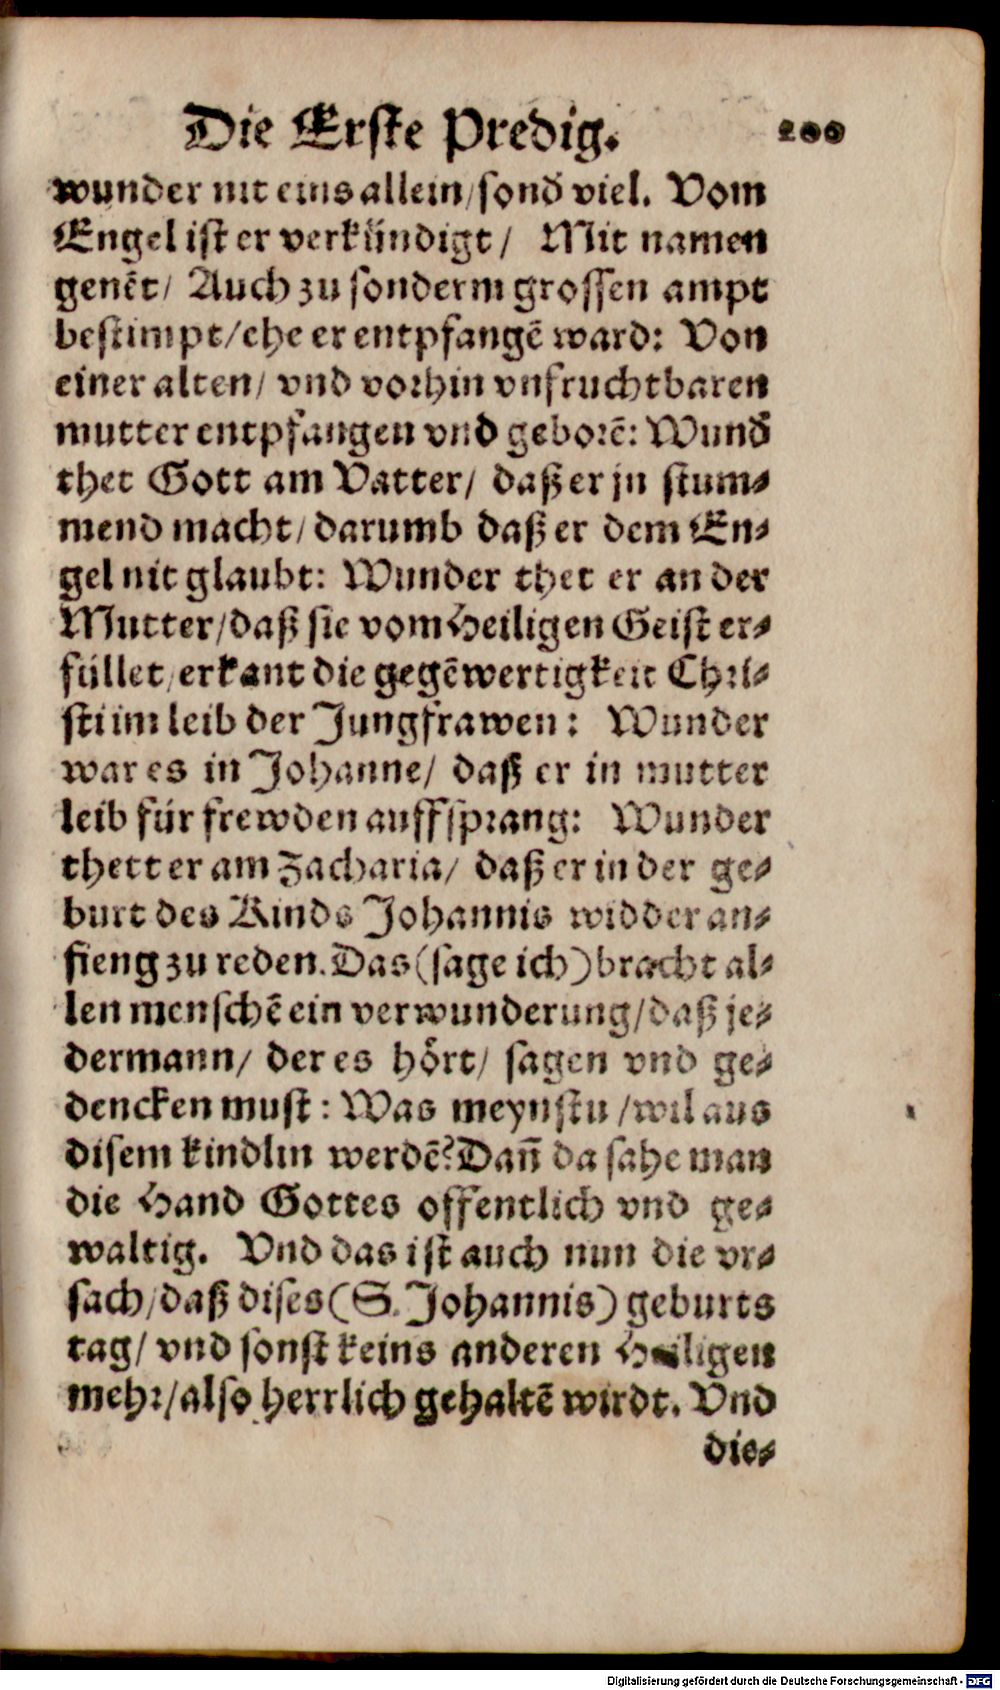 Die Erste Predig. 200
wunder nit eins allein/sonď viel. Vom
Engel ist er verkündigt/ Mit namen
genēt/ Auch zu sonderm grossen ampt
bestimpt/ehe er entpfangē ward: Von
einer alten/ vnd vorhin vnfruchtbaren
mutter entpfangen vnd geborē: Wunď
thet Gott am Vatter/ daß er jn stum-
mend macht/darumb daß er dem En-
gel nit glaubt: Wunder thet er an der
Mutter/daß sie vom Heiligen Geist er-
füllet/erkant die gegēwertigkeit Chri-
sti im leib der Jungfrawen: Wunder
war es in Johanne/ daß er in mutter
leib für frewden auffsprang: Wunder
thett er am Zacharia/ daß er in der ge-
burt des Kinds Johannis widder an-
fieng zu reden. Das (sage ich) bracht al-
len menschē ein verwunderung/daß je-
dermann/ der es hört/ sagen vnd ge-
dencken must: Was meynstu/wil aus
disem kindlin werdē? Dañ da sahe man
die Hand Gottes offentlich vnd ge-
waltig. Vnd das ist auch nun die vr-
sach/daß dises (S. Johannis) geburts
tag/ vnd sonst keins anderen Heiligen
mehr/also herrlich gehaltē wirdt. Vnd
die-
Digitalisierung gefördert durch die Deutsche Forschungsgemeinschaft - DFG